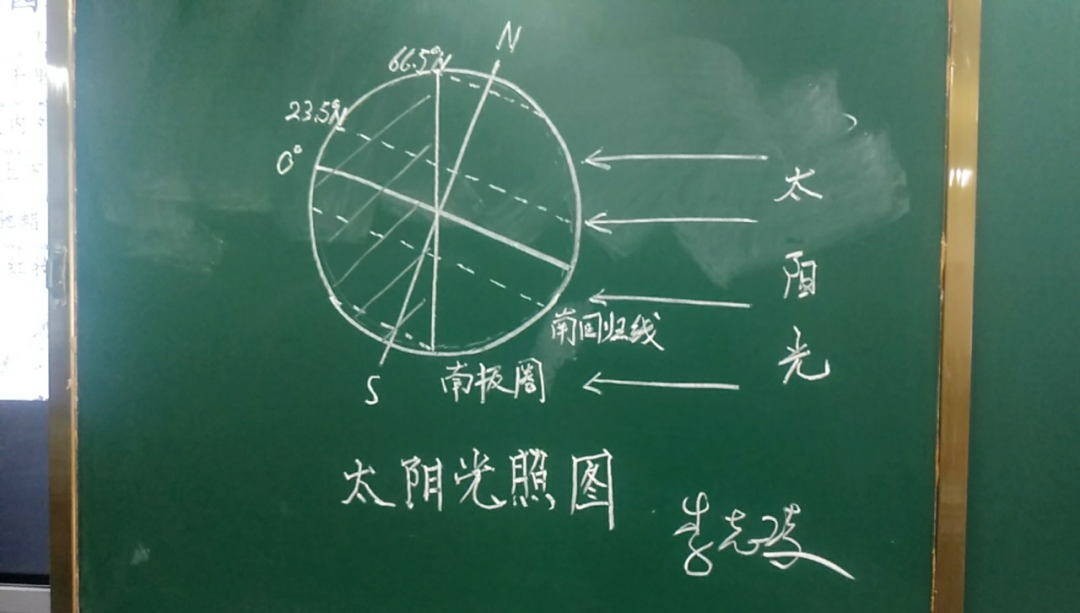 N
66.5°N
23.5°N
0°
太
阳
光
南回归线
S
南极圈
太阳光照图